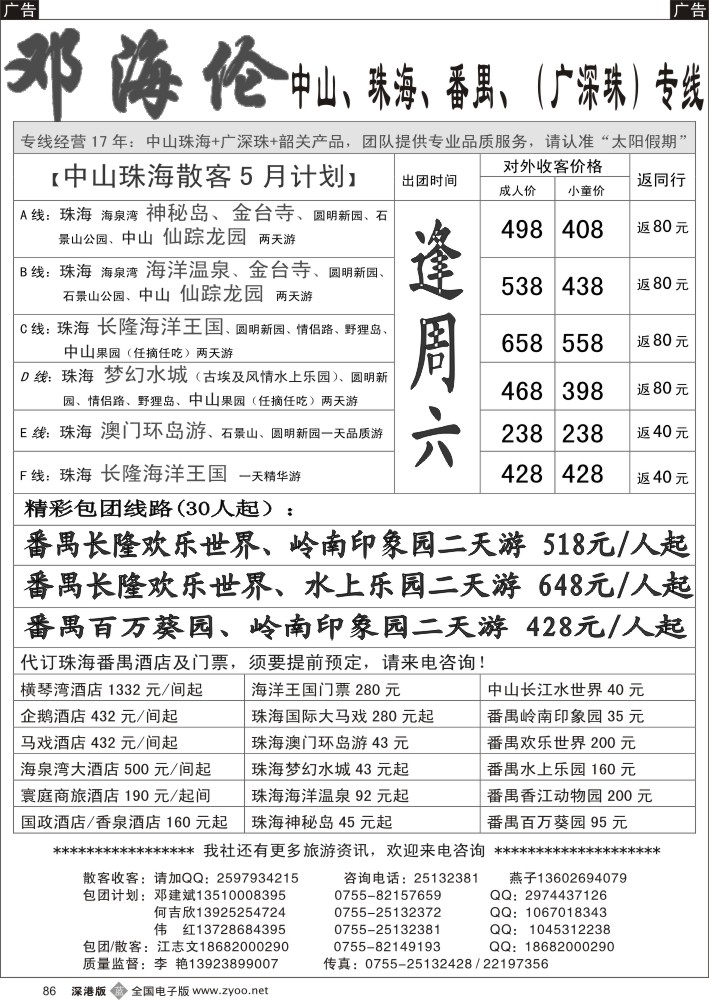 广告 广告
邓海伦 中山、珠海、番禺、（广深珠）专线
专线经营17年：中山珠海+广深珠+韶关产品，团队提供专业品质服务，请认准“太阳假期”
【中山珠海散客5月计划】 出团时间 对外收客价格 返同行
成人价 小童价
A线：珠海 海泉湾 神秘岛、金台寺、圆明新园、石
景山公园、中山 仙踪龙园 两天游 498 408 返80元
B线：珠海 海泉湾 海洋温泉、金台寺、圆明新园、
石景山公园、中山 仙踪龙园 两天游 538 438 返80元
C线：珠海 长隆海洋王国、圆明新园、情侣路、野狸岛、
中山果园（任摘任吃）两天游 658 558 返80元
D线：珠海 梦幻水城（古埃及风情水上乐园）、圆明新
园、情侣路、野狸岛、中山果园（任摘任吃）两天游 468 398 返80元
E线：珠海 澳门环岛游、石景山、圆明新园一天品质游 238 238 返40元
F线：珠海 长隆海洋王国 一天精华游 428 428 返40元
逢周六
精彩包团线路(30人起）：
番禺长隆欢乐世界、岭南印象园二天游 518元/人起
番禺长隆欢乐世界、水上乐园二天游 648元/人起
番禺百万葵园、岭南印象园二天游 428元/人起
代订珠海番禺酒店及门票，须要提前预定，请来电咨询！
横琴湾酒店1332元/间起 海洋王国门票280元 中山长江水世界40元
企鹅酒店432元/间起 珠海国际大马戏280元起 番禺岭南印象园35元
马戏酒店432元/间起 珠海澳门环岛游43元 番禺欢乐世界200元
海泉湾大酒店500元/间起 珠海梦幻水城43元起 番禺水上乐园160元
寰庭商旅酒店190元/起间 珠海海洋温泉92元起 番禺香江动物园200元
国政酒店/香泉酒店160元起 珠海神秘岛45元起 番禺百万葵园95元
***************** 我社还有更多旅游资讯，欢迎来电咨询 ********************
散客收客：请加QQ：2597934215 咨询电话：25132381 燕子13602694079
包团计划：邓建斌13510008395 0755-82157659 QQ：2974437126
何吉欣13925254724 0755-25132372 QQ：1067018343
伟 红13728684395 0755-25132381 QQ： 1045312238
包团/散客：江志文18682000290 0755-82149193 QQ：18682000290
质量监督：李 艳13923899007 传真：0755-25132428 / 22197356
86 深港版 全国电子版 www.zyoo.net